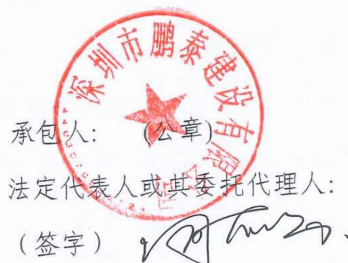 深圳市鹏泰建设有限公司
承包人： （公章）
法定代表人或其委托代理人：
（签字）